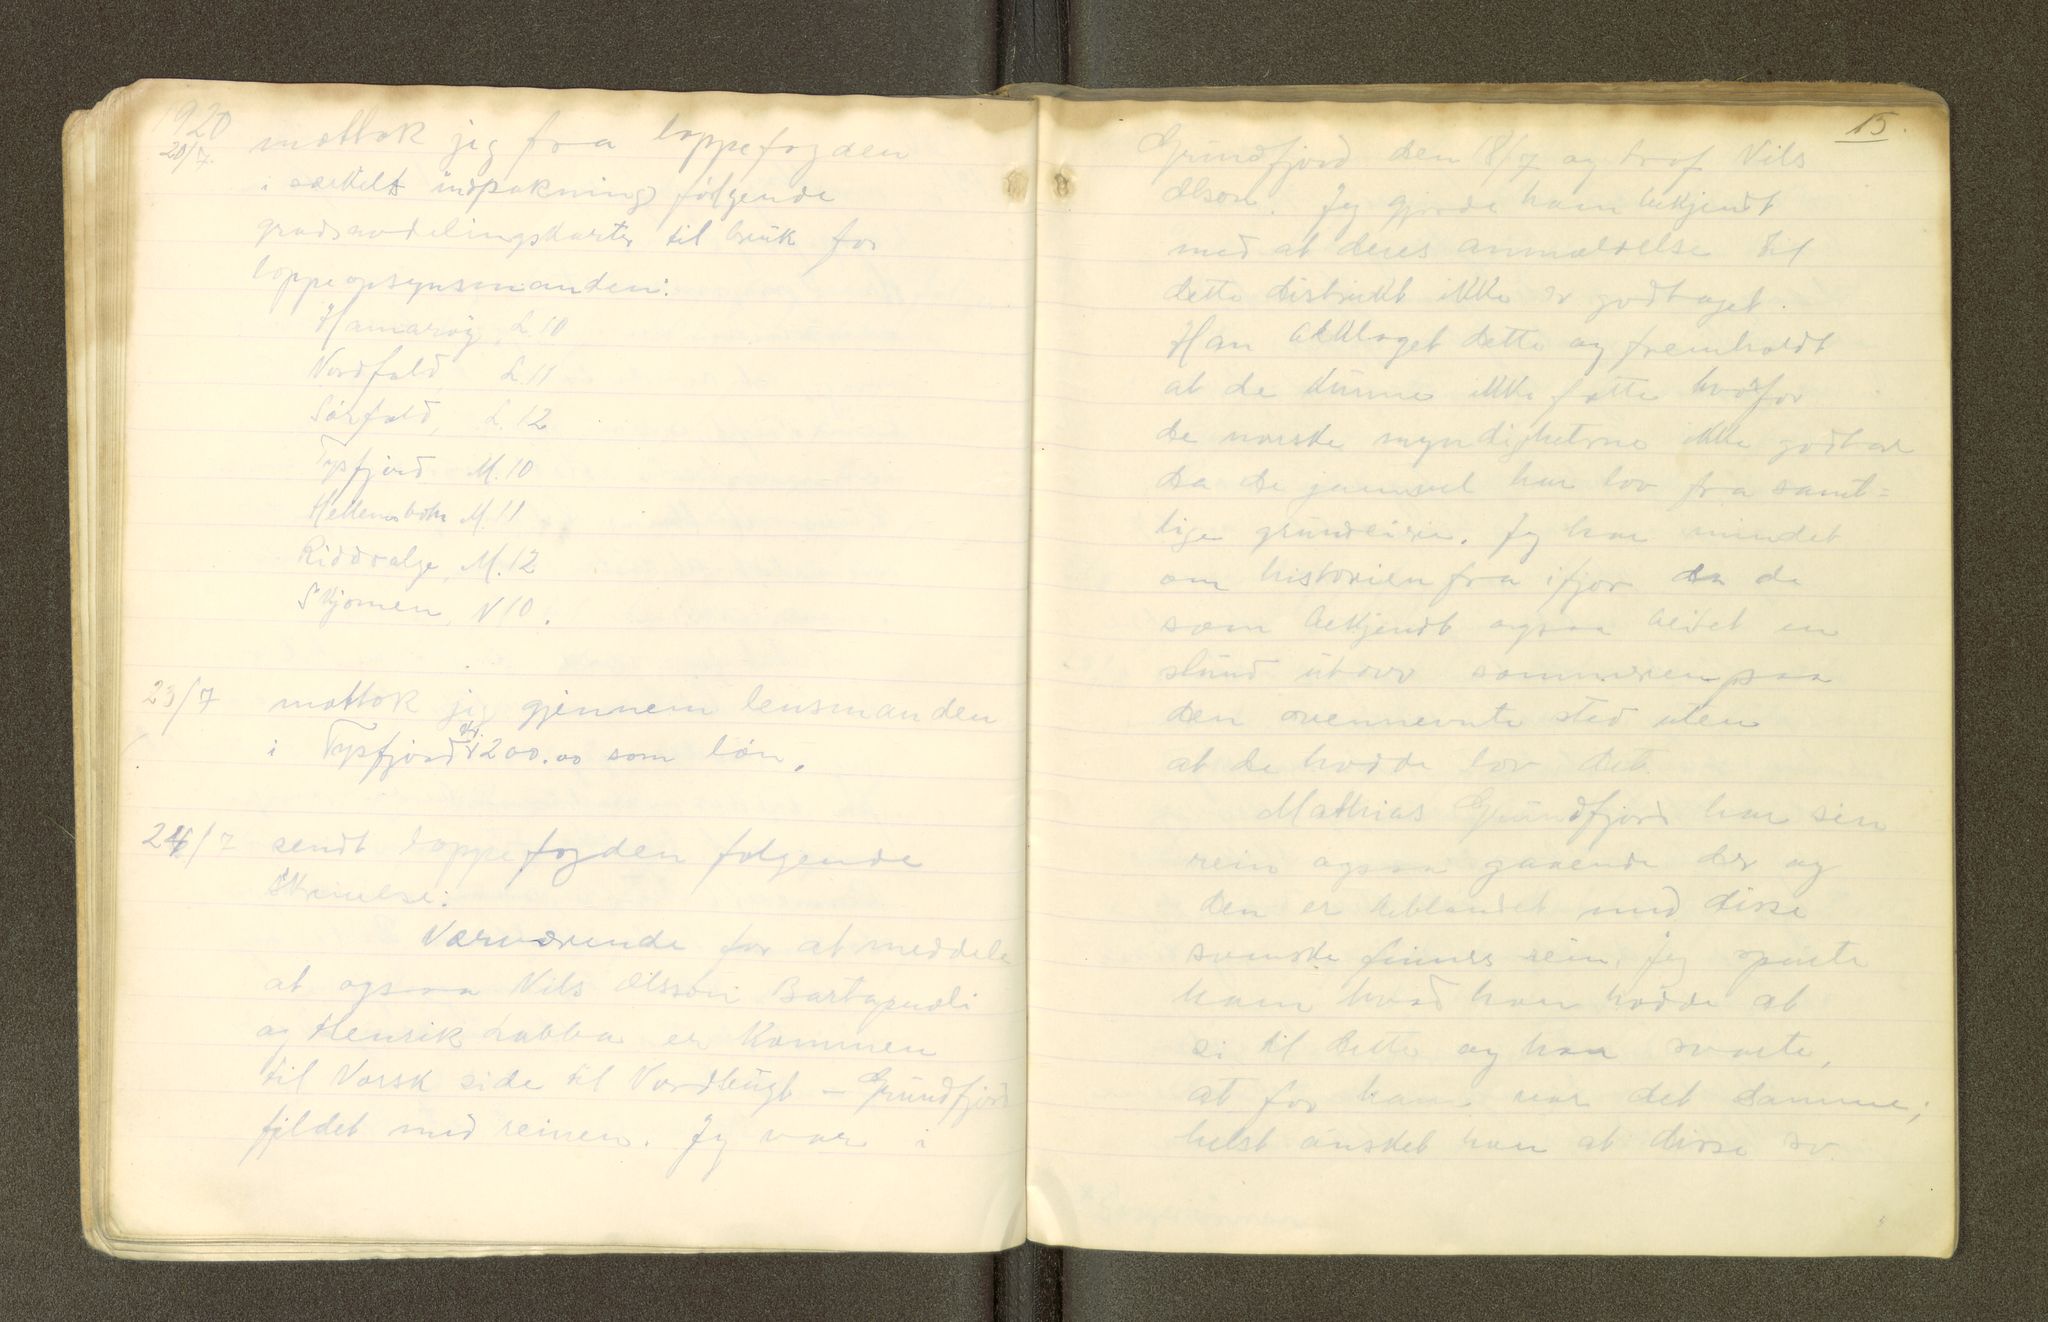 1920
20/7. mottok jeg fra lappefogden
i særkelt indpakning følgende
gradsavdelingskarter til bruk for
lappeopsynsmanden:
Hamarøy, L 10
Nordfold, L. 11
Sørfold, L. 12
Tysfjord M. 10
Hellemobotn M. 11
Riddoalge, M. 12
Skjomen, N 10.
23/7 mottok jeg gjennem lensmanden
i Tysfjord kr. 200.00 som løn.
24/7 sendt lappefogden følgende
skrivelse:
Nærværende for at meddele
at ogsaa Nils Olsson Bartapuoli
og Henrik Labba er kommen
til Norsk side til Nordbugt - Grundfjord
fjeldet med reinen. Jeg var i
15.
Grundfjord den 18/7 og traf Nils
Olson. Jeg gjorde ham bekjendt
med at deres anmeldelse til
dette distrikt ikke er godtaget.
Han beklaget dette og fremholdt
at de kunne ikke fatte hvorfor
de norske myndigheterne ikke godtar
da de jamvel har lov fra samt=
lige grundeiere. Jeg har mindet
om historien fra ifjor da de
som bekjendt ogsaa beitet en
stund utover sommeren paa
den ovennevnte sted uten
at de hadde lov det.
Mathias Grundfjord har sin
rein ogsaa gaaende der og
den er beblandet med disse
svenske finners rein. Jeg spurte
ham hvad han hadde at
si til dette og han svarte,
at for ham var det samme;
helst ønsket han at disse sv.